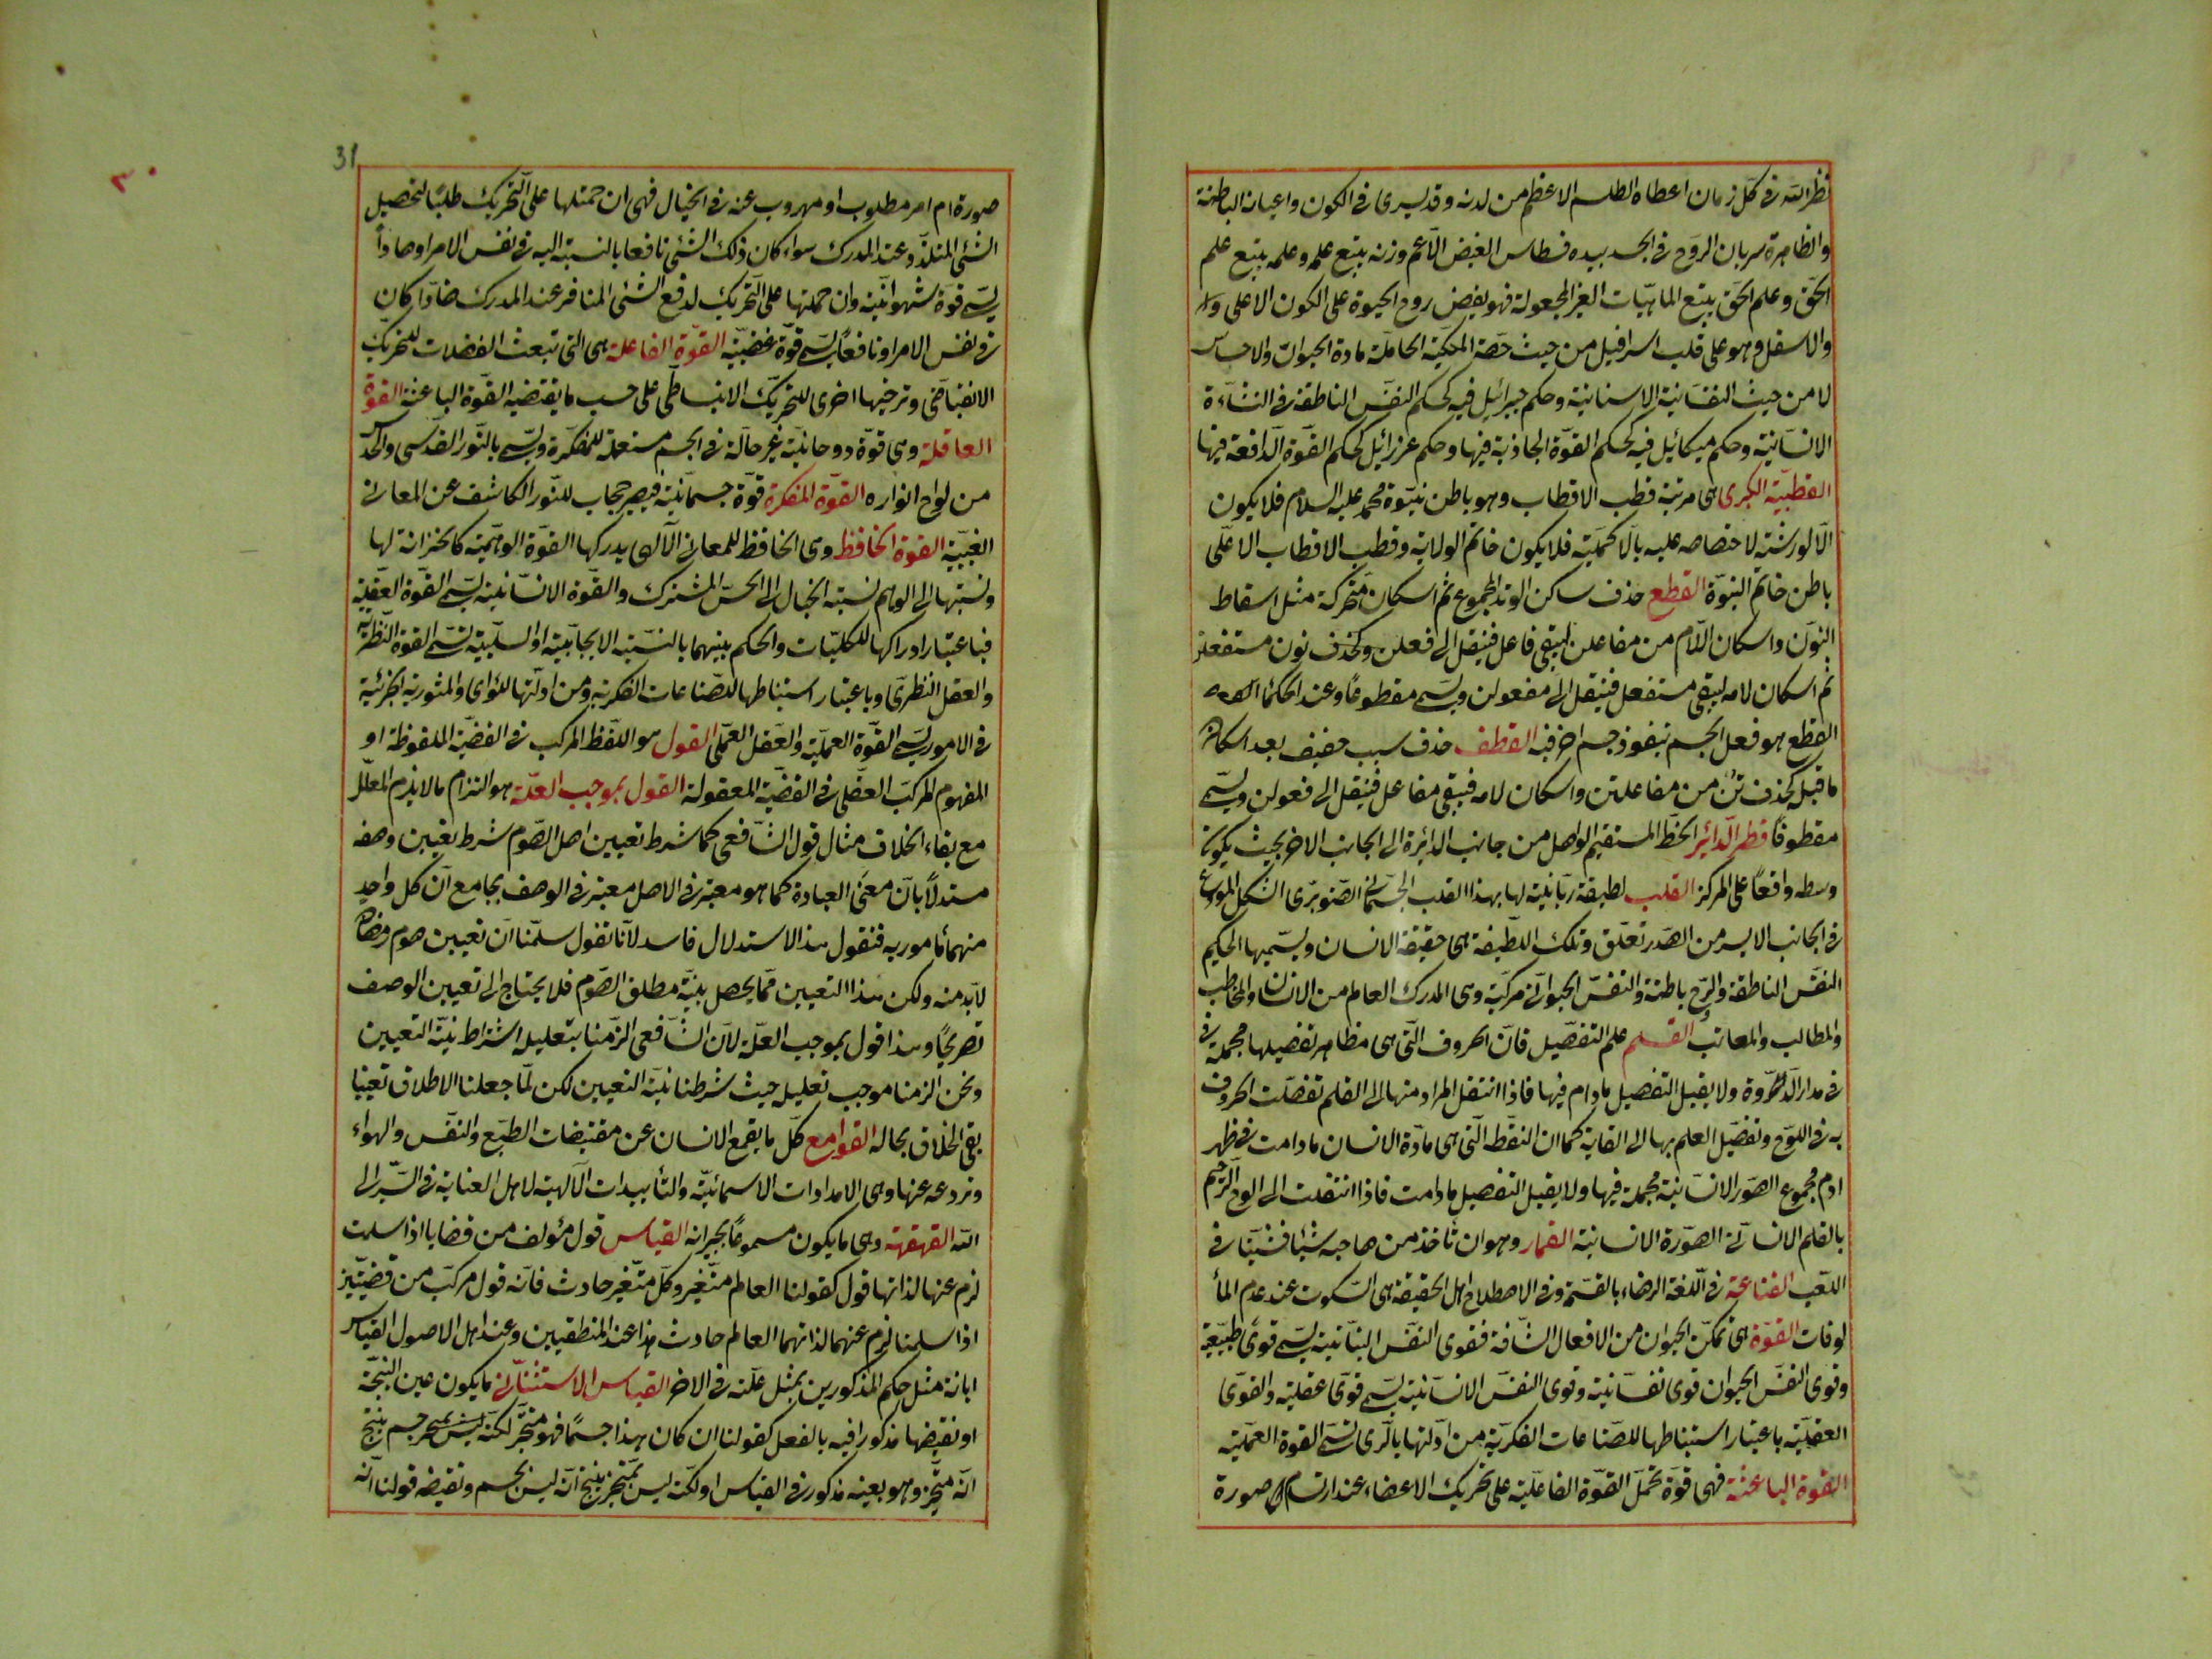 نظر الله فى كل زمان اعطاه الطلسم الاعظم من لدنه وقد يسرى فى الكون واعيانه الباطنة
والظاهرة سريان الروح فى الجسد بيده قسطاس الفيض الاعم وزنه يتبع علمه وعلمه يتبع علم
الحق وعلم الحق يتبع الماهيات الغير المجعولة فهو يفيض روح الحيوة على الكون الاعلى
والاسفل وهو على قلب اسرافيل من حيث حصة الملكية الحاملة مادة الحيوان والاحساس
لا من حيث النفسانية الانسانية وحكم جبرائيل فيه كحكم النفس الناطقة فى النشاءة
الانسانية وحكم ميكائيل فيه كحكم القوة الجاذبة فيها وحكم عزرائيل كحكم القوة الدافعة فيها
القطبية الكبرى هى مرتبة قطب الاقطاب وهو باطن نبوة محمد عليه السلام فلا يكون
الا لورثته لاختصاصه عليه بالاكملية فلا يكون خاتم الولاية وقطب الاقطاب الا على
باطن خاتم النبوة القطع حذف ساكن الوتد المجموع ثم اسكان متحركة مثل اسقاط
النون واسكان اللام من مفاعلن ليبقى فاعل فينقل الى فعلن وكحذف نون مستفعلن
ثم اسكان لامه ليبقى مستفعل فينقل الى مفعولن ويسمى مقطوعا وعند الحكماء
القطع هو فعل الجسم بنفوذ جسم اخر فيه القطف حذف سبب خفيف بعد اسكان
ما قبل كحذف تن من مفاعلتن واسكان لامه فيبقى مفاعل فينقل الى فعولن ويسمى
مقطوفا قطر الدائر الخط المستقيم الواصل من جانب الدائرة الى الجانب الاخر بحيث يكون
وسطه واقعا على المركز القلب لطيفة ربانية لها بهذا القلب الجسمانى الصنوبرى الشكل المودع
فى الجانب الايسر من الصدر تعلق وتلك اللطيفة هى حقيقة الانسان ويسميها الحكيم
النفس الناطقة والروح باطنة والنفس الحيوانى مركبة وهى المدرك العالم من الانسان والمخاطب
والمطالب والمعاتب القلم علم التفصيل فان الحروف التى هى مظاهر تفصيلها مجملة فى
فى مداد الدواة ولا يقبل التفصيل مادام فيها فاذا انتقل المراد منها الى القلم تفصلت الحروف
به فى اللوح وتفصيل العلم بها الى الغاية كما ان النقطة التى هى مادة الانسان مادامت فى ظهر
ادم مجموع الصور الانسانية مجملة فيها ولا يقبل التفصيل مادامت فاذا انتقلت الى الوح الرحم
بالقلم الانسانى الصورة الانسانية القمار وهو ان تأخذ من صاحبه شيئا فشيئا فى
اللعب القناعة فى اللغة الرضاء بالقسمة وفى الاصطلاح اهل الحقيقة هى السكون عند عدم الما
لوفات القوة هى تمكن الحيوان من الافعال الشاقة فقوى النفس النباتية يسمى قوى طبيعية
وقوى النفس الحيوان قوى نفسانية وقوى النفس الانسانية يسمى قوى عقلية والقوى
العقلية باعتبار استنباطها للصناعات الفكرية من ادلتها بالرى تسمى القوة العملية
القوة الباعثة فهى قوة تحمل القوة الفاعلية على تحريك الاعضاء عند ارتسام صورة
31
٣٠
صورة ام امر مطلوب او مهروب عنه فى الخيال فهى ان حملتها على التحريك طلبا لتحصيل
الشئ المتلذذ عند المدرك سواء كان ذلك الشئ نافعا بالنسبة اليه فى نفس الامر او ضارا
يسمى قوة شهوانية وان حملتها على التحريك لدفع الشئ المنافر عند المدرك ضارا كان
فى نفس الامر او نافعا يسمى قوة غضبية القوة الفاعلة هى التى تبعث العضلات للتحريك
الانقباضى وترخيها اخرى للتحريك الانبساطى على حسب ما يقتضيه القوة الباعثة القوة
العاقلة وهى قوة روحانية غير حالة فى الجسم مستعملة للمفكرة ويسمى بالنور القدسى والحدس
من لوامح انواره القوة المتفكرة قوة جسمانية فيصير حجاب للنور الكاشف عن المعانى
الغيبية القوة الحافظ وهى الحافظ للمعانى الالهى يدركها القوة الوهمية كالخزانة لها
ونسبتها الى الوهم نسبة الخيال الى الحس المشترك والقوة الانسانية يسمى القوة العقلية
فباعتبار ادراكها للكليات والحكم بينهما بالنسبة الايجابية او السلبية تسمى القوة النظرية
والعقل النظرى وباعتبار استنباطها للصناعات الفكرية ومن ادلتها للواى والمشورية الجزئية
فى الامور يسمى القوة العملية والعقل العملى القول هو اللفظ المركب فى القضية الملفوظة او
المفهوم المركب العقلى فى القضية المعقولة القول بموجب العلة هو التزام ما لا يلزم المعلل
مع بقاء الخلاف مثال قول الشافعى كما شرط تعيين اصل الصوم شرط تعيين وصفه
مستدلا بان معنى العبادة كما هو معتبر فى الاصل معتبر فى الوصف بجامع ان كل واحد
منهما مامور به فنقول هذا الاستدلال فاسد لانا نقول سلمنا ان تعيين صوم رمضان
لابد منه ولكن هذا التعيين مما يحصل بنية مطلق الصوم فلا يحتاج الى تعيين الوصف
تصريحا وهذا قول بموجب العلة لان الشافعى الزمنا بتعليله اشتراط نية التعيين
ونحن الزمنا موجب تعليل حيث شرطنا نية التعيين لكن لما جعلنا الاطلاق تعيينا
بقى الخلاف بحاله القوامع كل ما يقمع الانسان عن مقتضيات الطبع والنفس والهواء
ونردعه عنها وهى الامدادات الاسمائية والتأييدات الالهية لاهل العناية فى السير الى
الله القهقهة وهى ما يكون مسموعا لجيرانه القياس قول مؤلف من قضايا اذا سلمت
لزم عنها لذاتها قول كقولنا العالم متغير وكل متغير حادث فانه قول مركب من قضيتين
اذا سلمنا لزم عنهما لذاتهما العالم حادث هذا عند المنطقيين وعند اهل الاصول القياس
ابانة مثل حكم المذكورين بمثل علته فى الاخر القياس الاستثنائى ما يكون عين النتيجة
او نقيضها مذكورا فيه بالفعل كقولنا ان كان هذا جسما فهو متحيز لكنه جسم ينتج
انه متحيز وهو بعينه مذكور فى القياس او لكنه ليس بمتحيز ينتج انه ليس بجسم ونقيضه قولنا انه